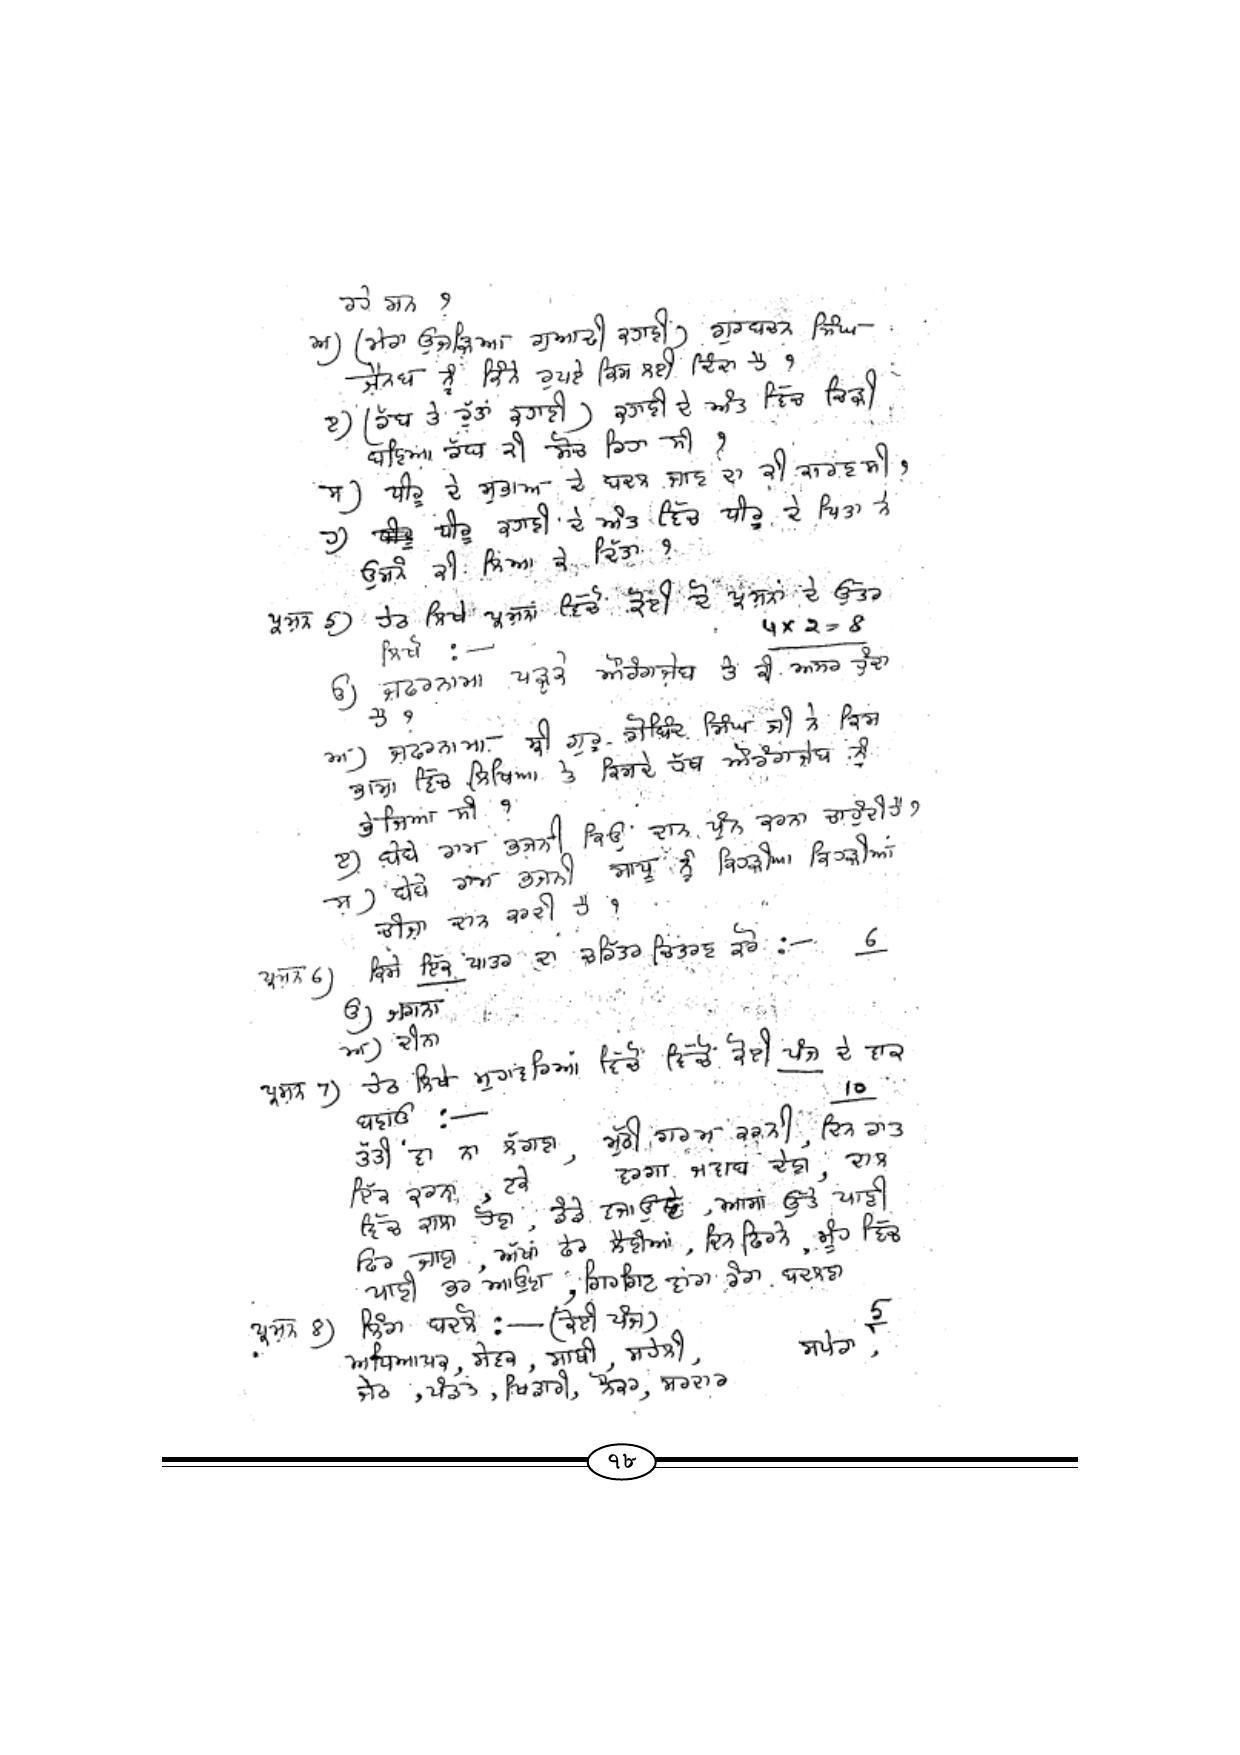 ਰਹੇ ਸਨ ?
ਅ) (ਮੇਰਾ ਉਜੜਿਆ ਗੁਆਂਢੀ ਕਹਾਣੀ) ਗੁਰਬਚਨ ਸਿੰਘ
ਜ਼ੈਨਬ ਨੂੰ ਕਿੰਨੇ ਰੁਪਏ ਕਿਸ ਲਈ ਦਿੰਦਾ ਹੈ ?
ੲ) (ਰੱਬ ਤੇ ਰੁੱਤਾਂ ਕਹਾਣੀ) ਕਹਾਣੀ ਦੇ ਅੰਤ ਵਿੱਚ ਚਿੜੀ
ਬਣਿਆ ਰੱਬ ਕੀ ਸੋਚ ਰਿਹਾ ਸੀ ?
ਸ) ਧੀਰੂ ਦੇ ਸੁਭਾਅ ਦੇ ਬਦਲ ਜਾਣ ਦਾ ਕੀ ਕਾਰਣ ਸੀ ?
ਹ) ਧੀਰੂ ਕਹਾਣੀ ਦੇ ਅੰਤ ਵਿੱਚ ਧੀਰੂ ਦੇ ਪਿਤਾ ਨੇ
ਉਸਨੂੰ ਕੀ ਲਿਆ ਕੇ ਦਿੱਤਾ ?
ਪ੍ਰਸ਼ਨ 5) ਹੇਠ ਲਿਖੇ ਪ੍ਰਸ਼ਨਾਂ ਵਿੱਚੋਂ ਕੋਈ ਦੋ ਪ੍ਰਸ਼ਨਾਂ ਦੇ ਉੱਤਰ
ਲਿਖੋ :— 4x2=8
ੳ) ਜ਼ਫਰਨਾਮਾ ਪੜ੍ਹਕੇ ਔਰੰਗਜ਼ੇਬ ਤੇ ਕੀ ਅਸਰ ਹੁੰਦਾ
ਹੈ ?
ਅ) ਜ਼ਫਰਨਾਮਾ ਸ਼੍ਰੀ ਗੁਰੂ ਗੋਬਿੰਦ ਸਿੰਘ ਜੀ ਨੇ ਕਿਸ
ਭਾਸ਼ਾ ਵਿੱਚ ਲਿਖਿਆ ਤੇ ਕਿਸਦੇ ਹੱਥ ਔਰੰਗਜ਼ੇਬ ਨੂੰ
ਭੇਜਿਆ ਸੀ ?
ੲ) ਬੇਬੇ ਰਾਮ ਭਜਨੀ ਕਿਉਂ ਦਾਨ ਪੁੰਨ ਕਰਨਾ ਚਾਹੁੰਦੀ ਹੈ ?
ਸ) ਬੇਬੇ ਰਾਮ ਭਜਨੀ ਸਾਧੂ ਨੂੰ ਕਿਹੜੀਆ ਕਿਹੜੀਆਂ
ਚੀਜ਼ਾ ਦਾਨ ਕਰਦੀ ਹੈ ?
ਪ੍ਰਸ਼ਨ 6) ਕਿਸੇ ਇੱਕ ਪਾਤਰ ਦਾ ਚਰਿੱਤਰ ਚਿਤਰਣ ਕਰੋ :— 6
ੳ) ਜਗਨਾ
ਅ) ਦੀਨਾ
ਪ੍ਰਸ਼ਨ 7) ਹੇਠ ਲਿਖੇ ਮੁਹਾਵਰਿਆਂ ਵਿੱਚੋਂ ਵਿੱਚੋਂ ਕੋਈ ਪੰਜ ਦੇ ਵਾਕ
ਬਣਾਓ :— 10
ਤੱਤੀ 'ਵਾ ਨਾ ਲੱਗਣਾ, ਮੁੱਠੀ ਗਰਮ ਕਰਨੀ, ਦਿਨ ਰਾਤ
ਇੱਕ ਕਰਨਾ, ਟਕੇ ਵਰਗਾ ਜਵਾਬ ਦੇਣਾ, ਦਾਲ
ਵਿੱਚ ਕਾਲਾ ਹੋਣਾ, ਡੰਡੇ ਵਜਾਉਣੇ, ਆਸਾਂ ਉੱਤੇ ਪਾਣੀ
ਫਿਰ ਜਾਣਾ, ਅੱਖਾਂ ਫੇਰ ਲੈਣੀਆਂ, ਦਿਨ ਫਿਰਨੇ, ਮੂੰਹ ਵਿੱਚ
ਪਾਣੀ ਭਰ ਆਉਣਾ, ਗਿਰਗਿਟ ਵਾਂਗ ਰੰਗ ਬਦਲਣਾ
ਪ੍ਰਸ਼ਨ 8) ਲਿੰਗ ਬਦਲੋ :— (ਕੋਈ ਪੰਜ) 5
ਅਧਿਆਪਕ, ਸੇਵਕ, ਸਾਥੀ, ਸਹੇਲੀ, ਸਪੇਰਾ,
ਜੇਠ, ਪੰਡਤ, ਖਿਡਾਰੀ, ਨੌਕਰ, ਸਰਦਾਰ
੧੮